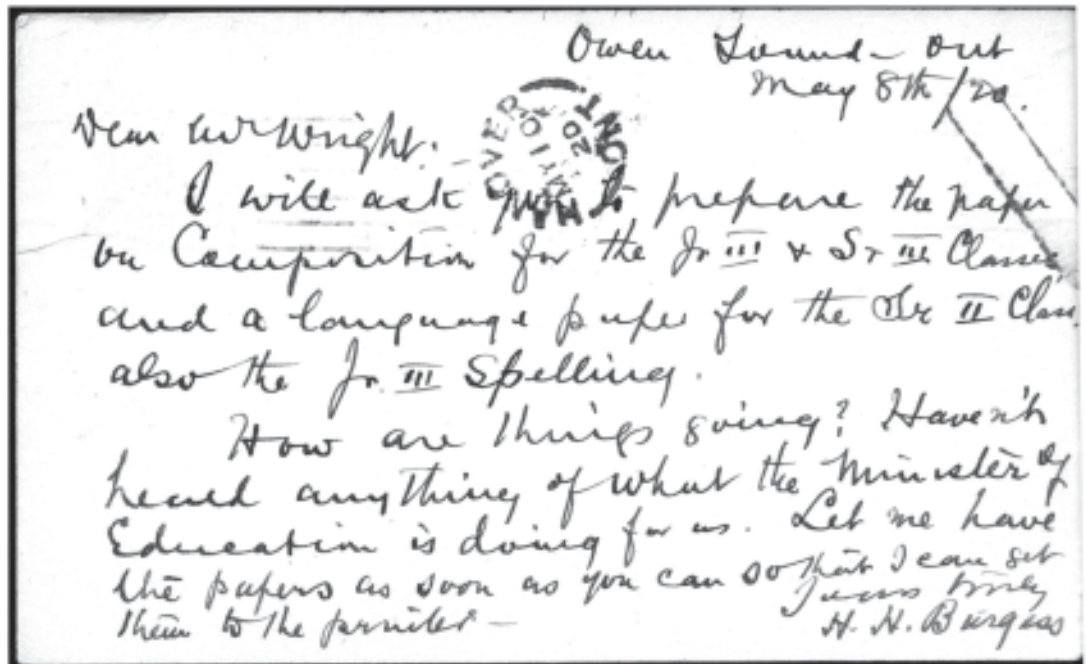 Owen Sound - Ont
May 8th/20.
Dear Mr Wright.
HANOVER ONT
MY 10
20
I will ask you to prepare the paper
on Composition for the Jr III & Sr III Classes
and a language paper for the Sr II Class
also the Jr. III Spelling.
How are things going? Haven't
heard anything of what the Minister of
Education is doing for us. Let me have
the papers as soon as you can so that I can get
them to the printer -
Yours truly
H. H. Burgess